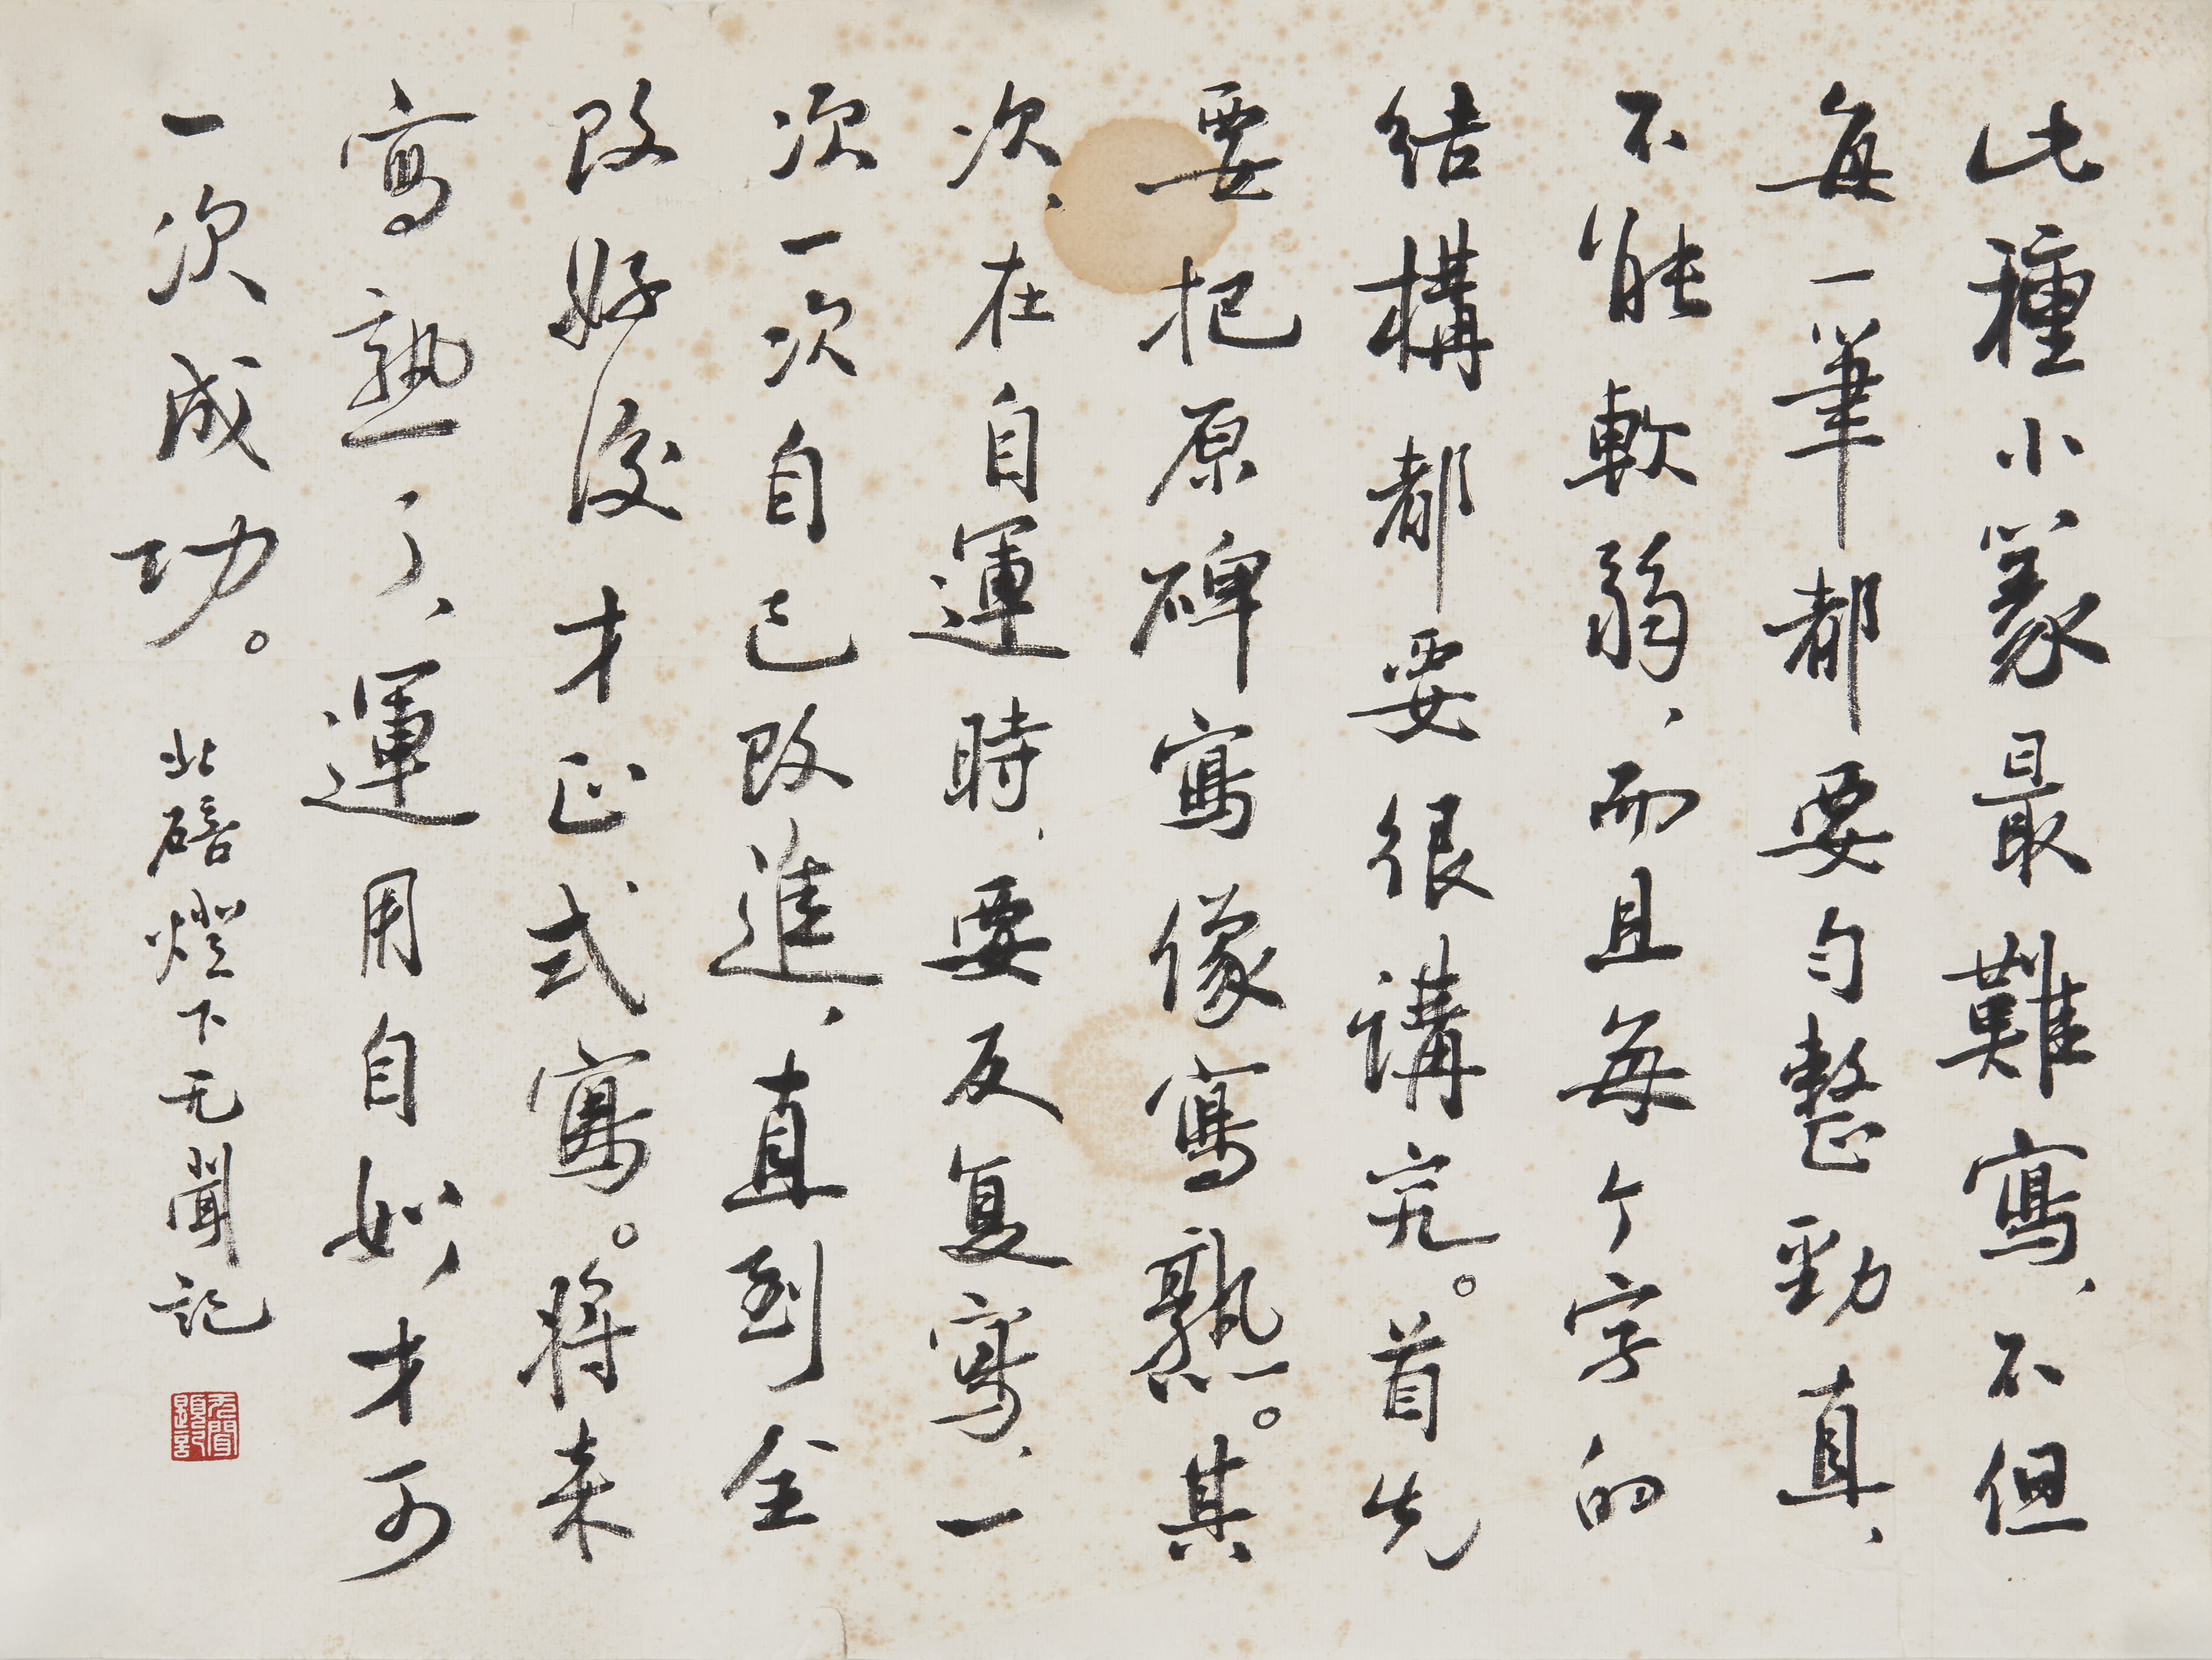 此種小篆最難寫、不但
每一筆都要勻整勁直、
不能軟弱、而且每个字的
結構都要很講究。首先
要把原碑寫像寫熟。其
次、在自運時、要反复寫、一
次一次自己改進、直到全
改好後才正式寫。將来
寫熟了、運用自如、才可
一次成功。
北碚燈下无聞記
无聞題記